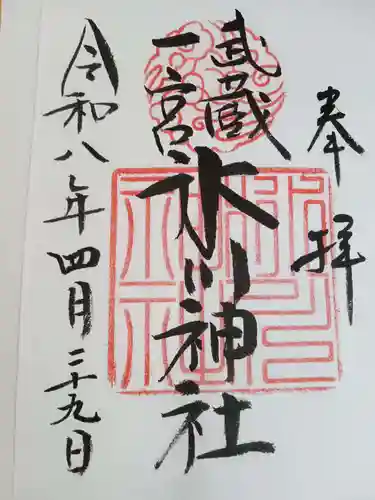 奉拝
武蔵
一宮
氷川神社
令和八年四月二十九日